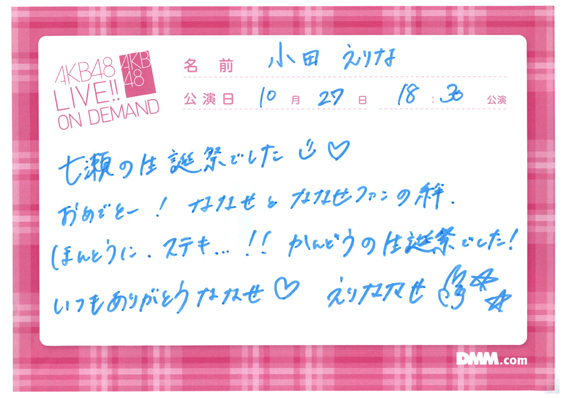 AKB48
LIVE!!
ON DEMAND
AKB
48
名前 小田 えりな
公演日 10月27日 18:30 公演
七瀬の生誕祭でした
おめでとー! ななせとななせファンの絆.
ほんとうに. ステキ...!! かんどうの生誕祭でした!
いつもありがとうななせ♡ えりななせ
DMM.com